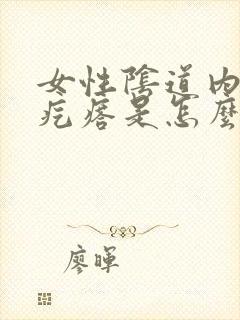 女性陰道內
疙瘩是怎麼
廖暉